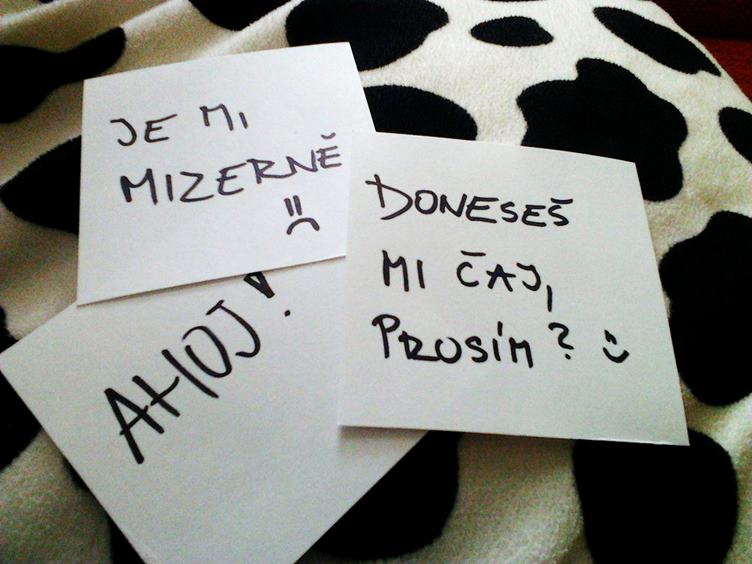 JE MI
MIZERNĚ
AHOJ!
DONESEŠ
MI ČAJ,
PROSÍM?